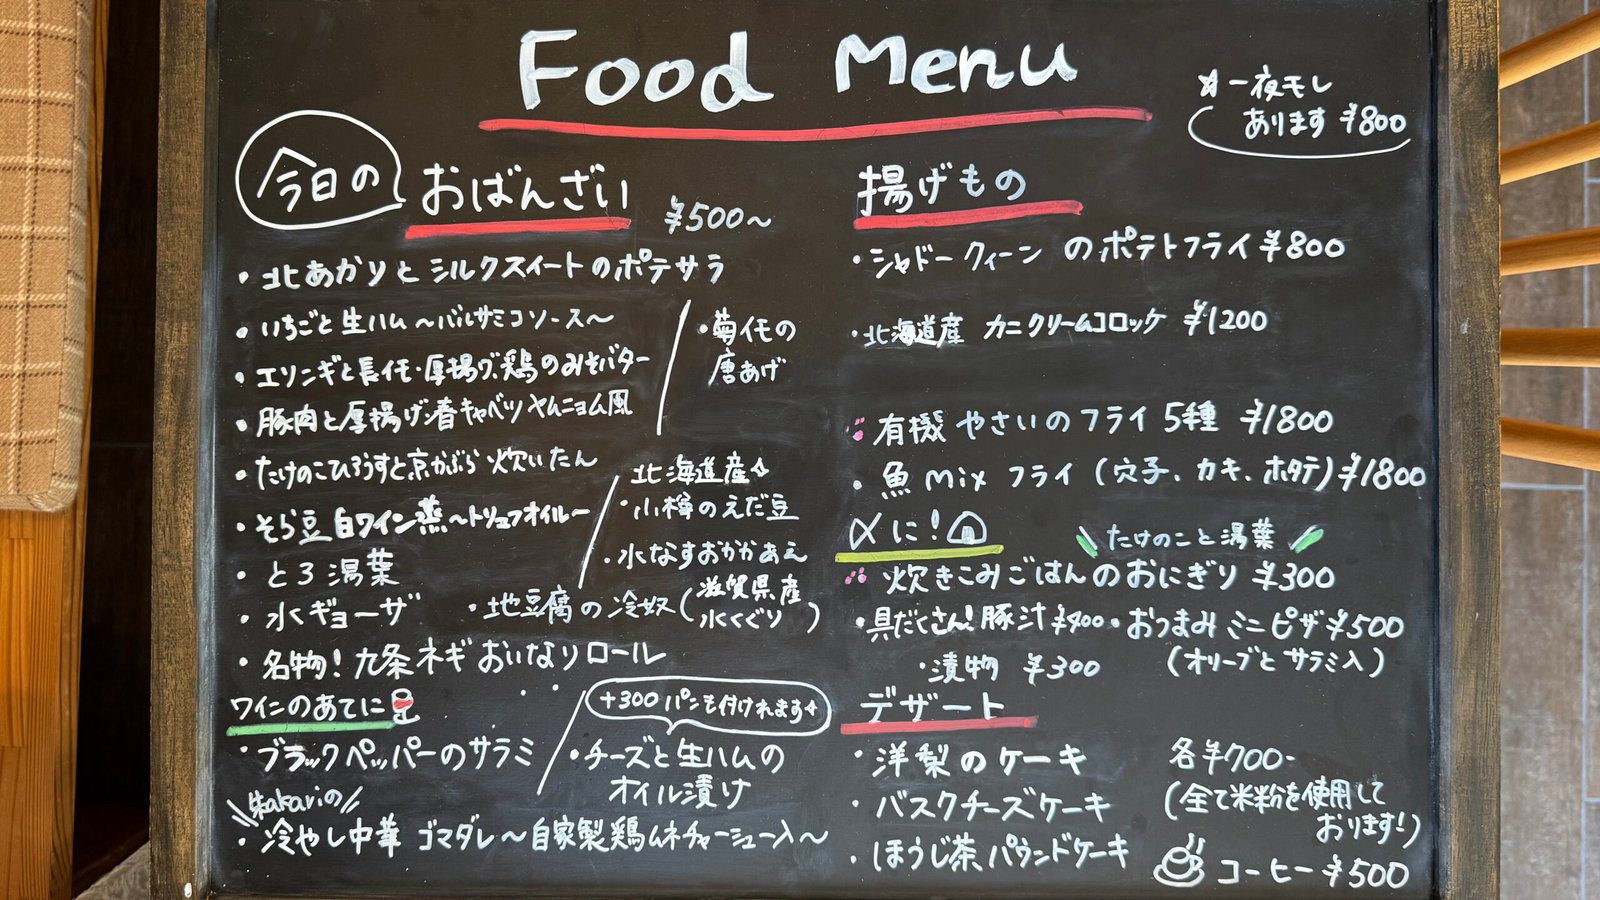 Food Menu
☆一夜モし
あります ¥800
今日の おばんざい ¥500〜
・北あかりとシルクスイートのポテサラ
・いちごと生ハム〜バルサミコソース〜
・エリンギと長イモ・厚揚げ、鶏のみそバター
・豚肉と厚揚げ春キャベツヤムニョム風
・たけのこひろうすと京かぶら炊いたん
・そら豆白ワイン蒸〜トリュフオイル〜
・とろ湯葉
・水ギョーザ
・名物！九条ネギおいなりロール
・菊イモの
唐あげ
北海道産
・小樽のえだ豆
・水なすおかかあえ
・地豆腐の冷奴(滋賀県産
水くぐり)
ワインのあてに
・ブラックペッパーのサラミ
+300 パンも付けれます
・チーズと生ハムの
オイル漬け
akariの
・冷やし中華 ゴマダレ〜自家製鶏ムネチャーシュー入〜
揚げもの
・シャドークィーン のポテトフライ ¥800
・北海道産 カニクリームコロッケ ¥1200
有機やさいのフライ 5種 ¥1800
・魚mixフライ(穴子、カキ、ホタテ) ¥1800
〆に！
たけのこと湯葉
炊きこみごはんのおにぎり ¥300
・具だくさん！豚汁 ¥400
・おつまみミニピザ ¥500
(オリーブとサラミ入)
・漬物 ¥300
デザート
・洋梨のケーキ
・バスクチーズケーキ
・ほうじ茶パウンドケーキ
各¥700-
(全て米粉を使用して
おります！)
コーヒー ¥500